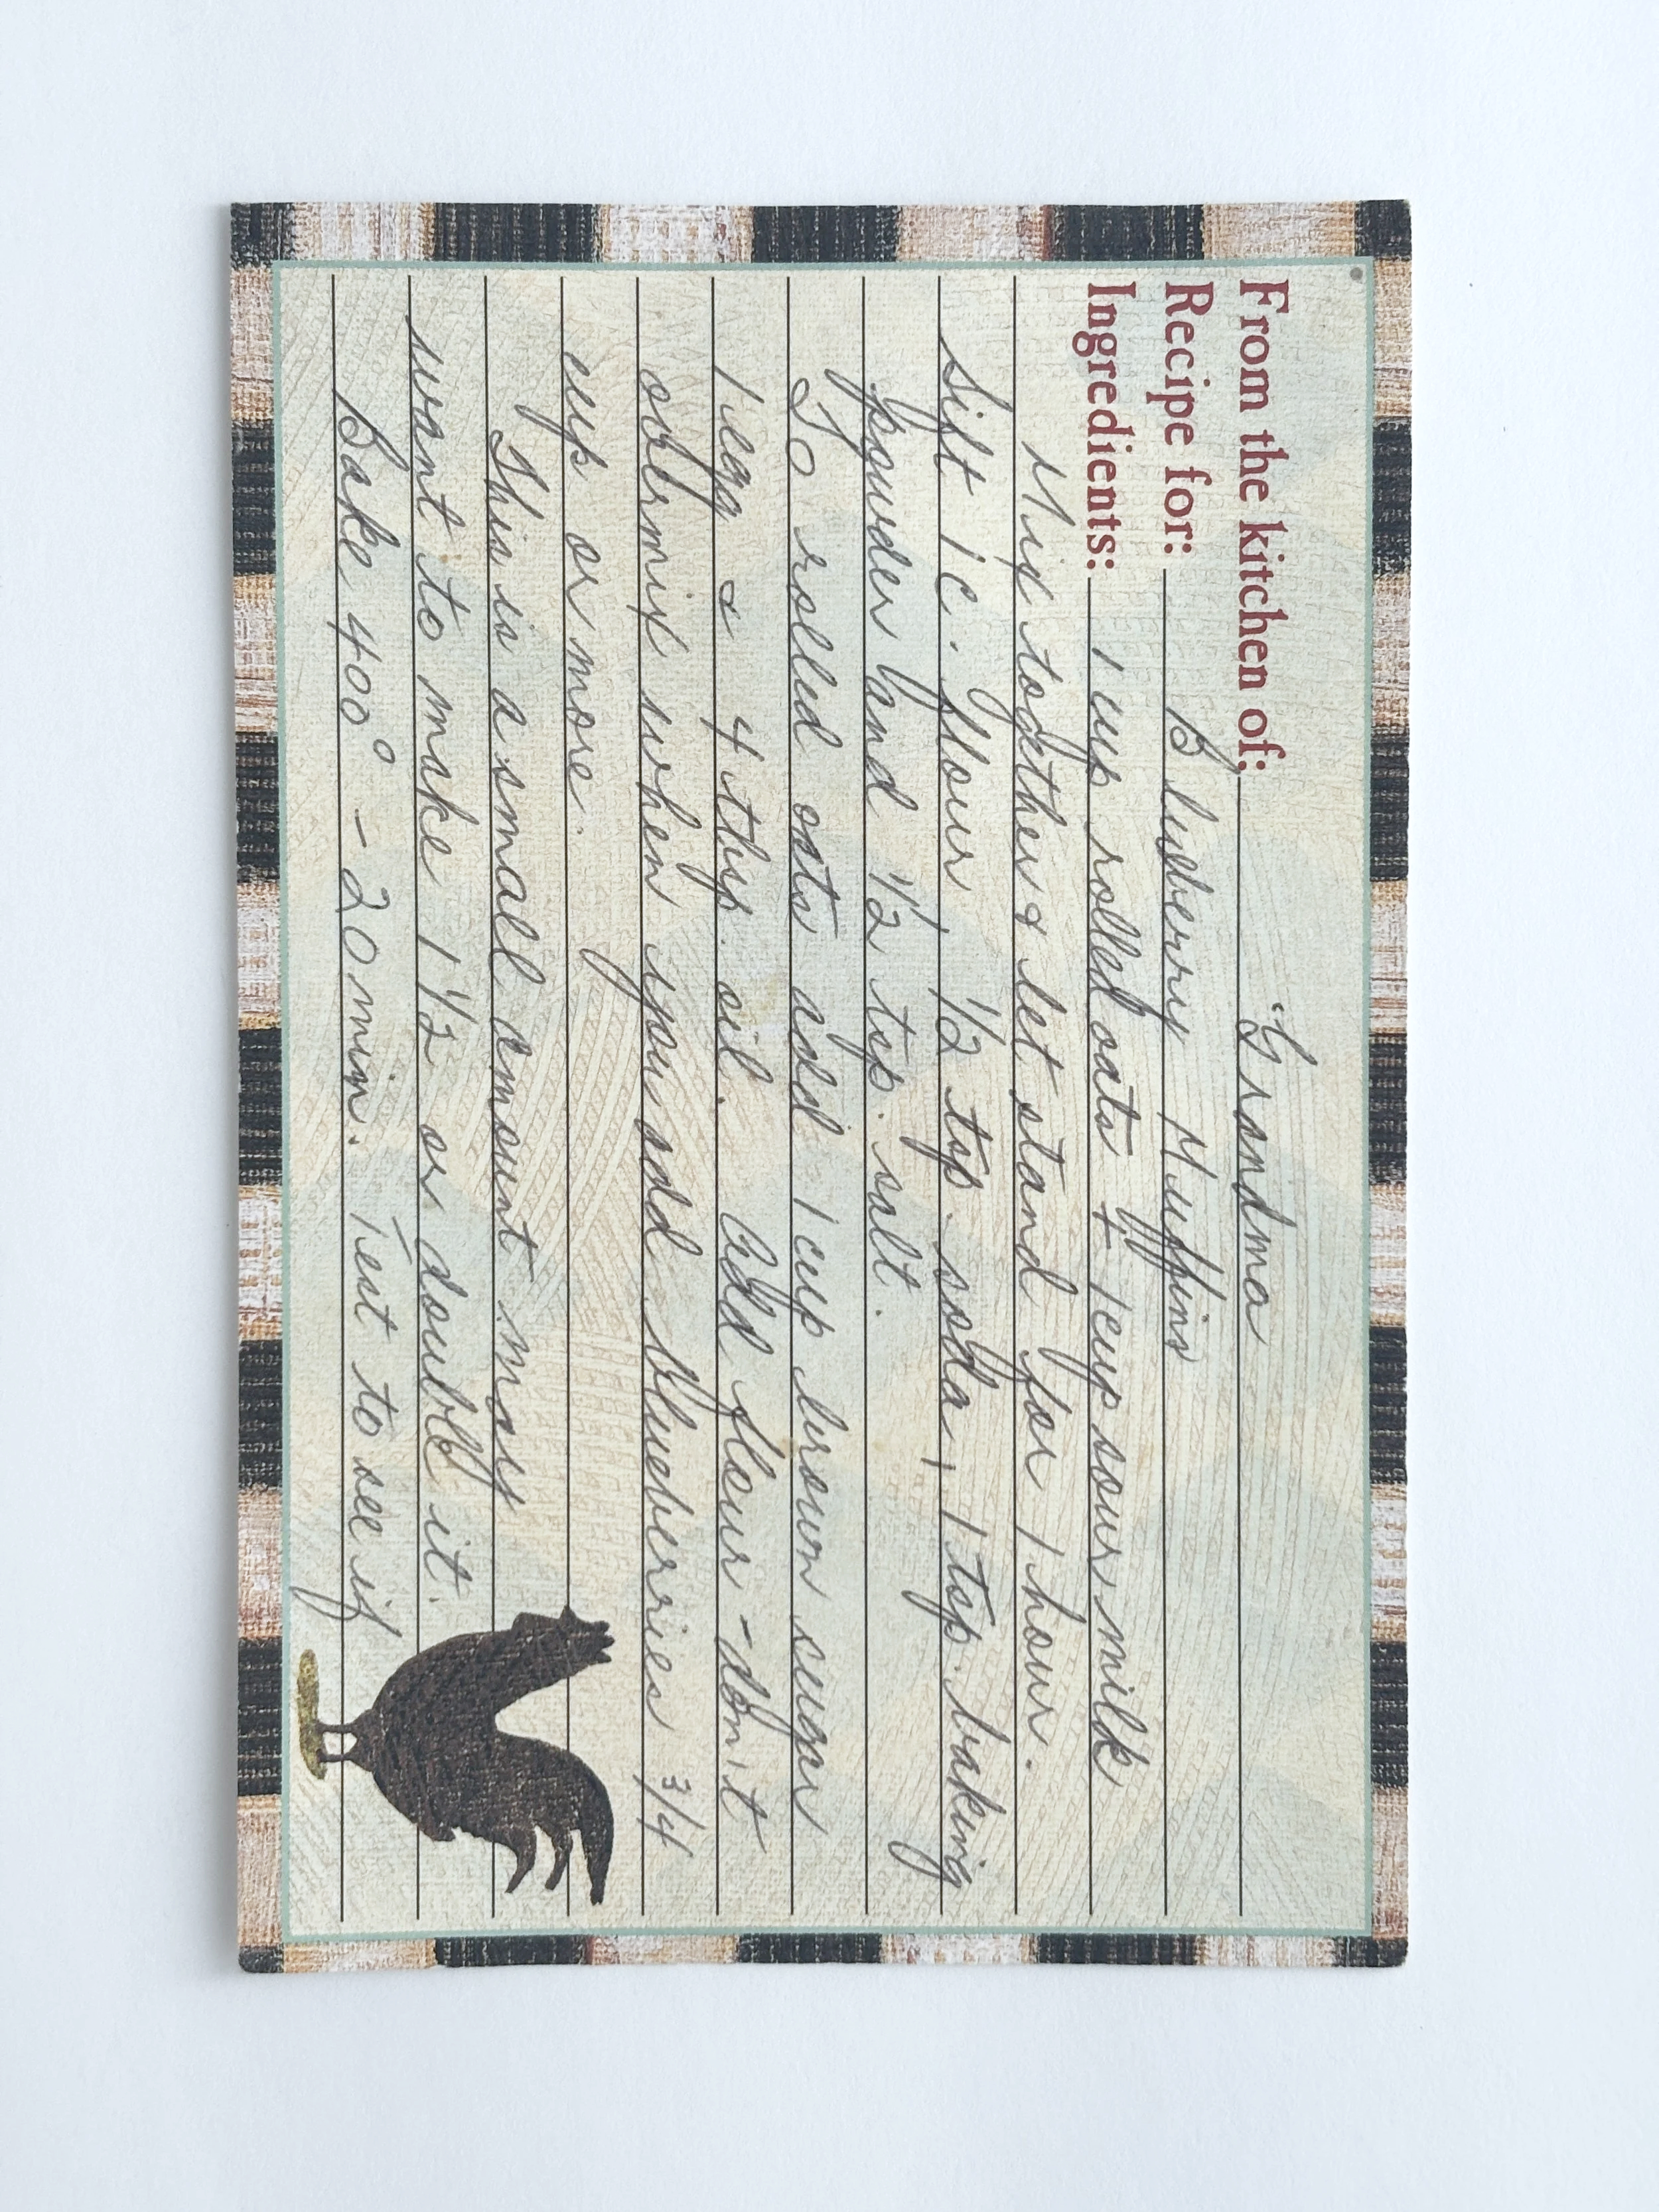 From the kitchen of: Grandma
Recipe for: Blueberry Muffins
Ingredients: 1 cup rolled oats + 1 cup sour milk
Mix together & let stand for 1 hour.
Sift 1 c. flour, 1/2 tsp. soda, 1 tsp. baking
powder and 1/2 tsp. salt.
To rolled oats add 1 cup brown sugar
1 egg & 4 tbsp. oil. Add flour - don't
overmix when you add blueberries 3/4
cup or more.
This is a small amount may
want to make 1 1/2 or double it.
Bake 400° - 20 min. Test to see if